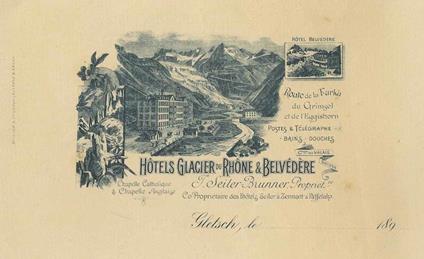 HÔTEL BELVÉDÈRE
Route de la Furka
du Grimsel
et de l'Eggishorn
POSTES & TÉLÉGRAPHE
BAINS - DOUCHES
CTON DU VALAIS
HÔTELS GLACIER DU RHÔNE & BELVÉDÈRE
J. Seiler-Brunner, Propriét.re
Chapelle Catholique
& Chapelle Anglaise
Co-Propriétaire des Hôtels Seiler à Zermatt & Riffelalp.
Gletsch, le 189